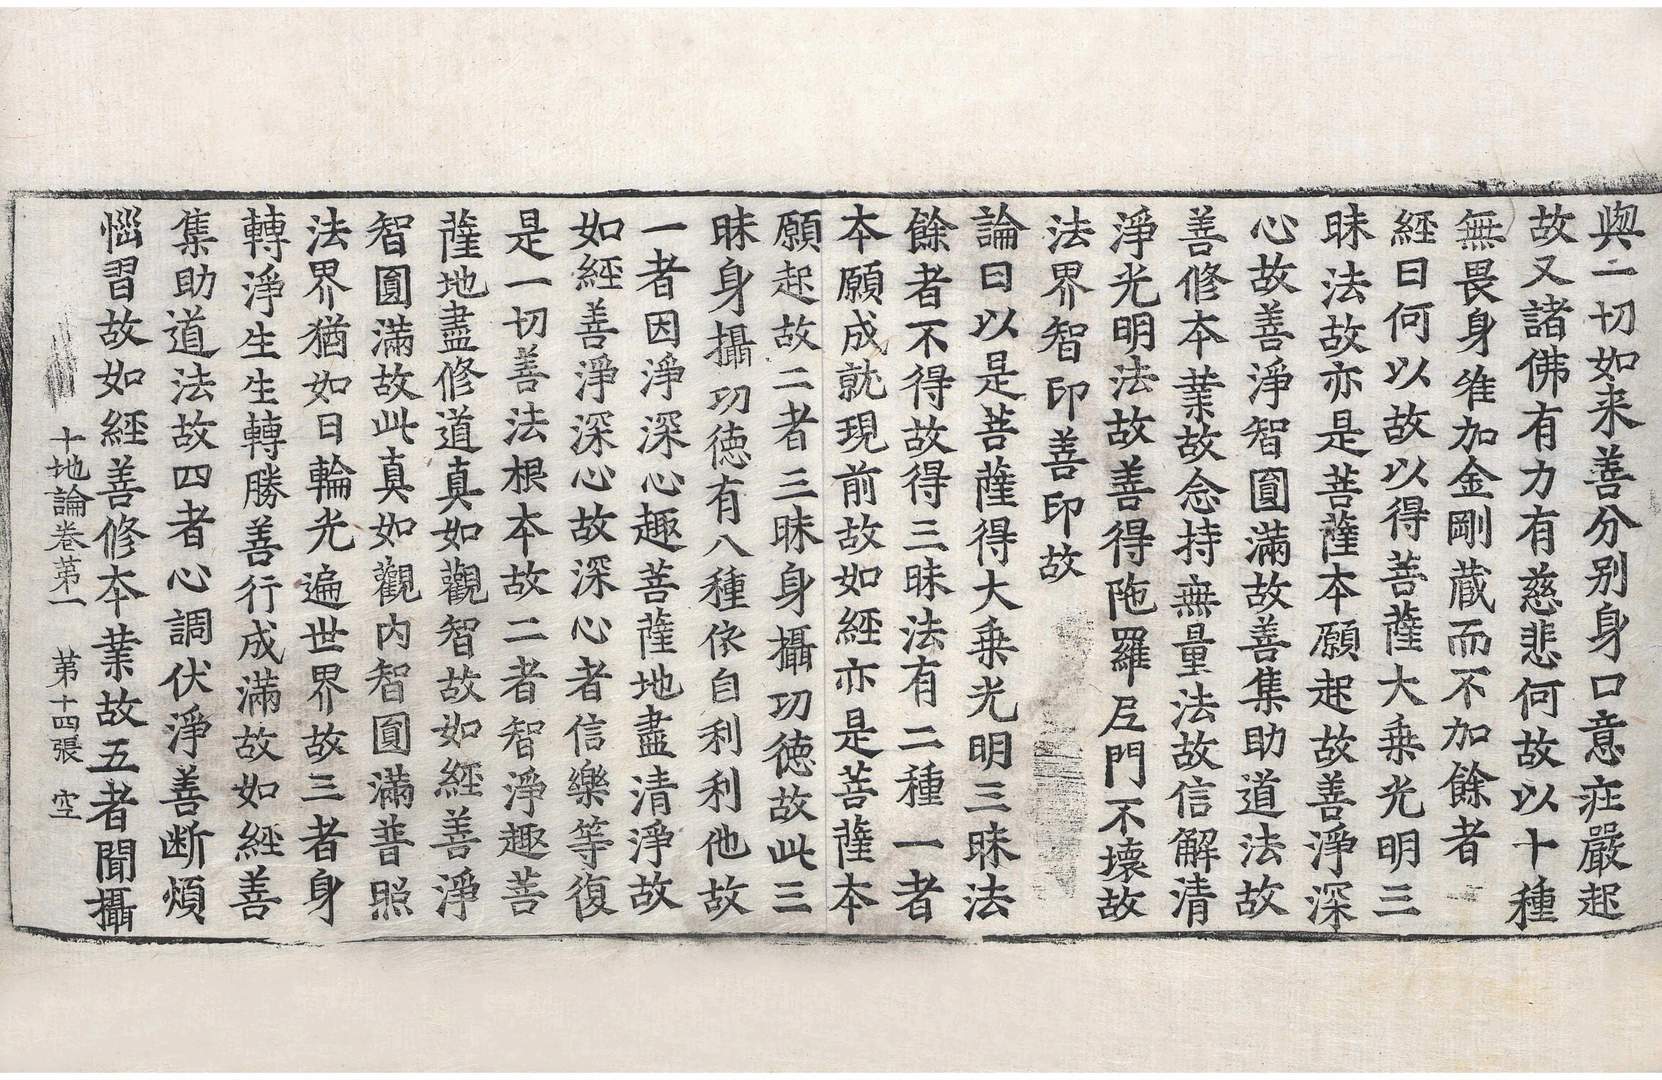 與一切如来善分别身口意㽵嚴起
故又諸佛有力有慈悲何故以十種
無畏身唯加金剛蔵而不加餘者
經曰何以故以得菩薩大乗光明三
昧法故亦是菩薩本願起故善淨深
心故善淨智圎滿故善集助道法故
善修本業故念持無量法故信解清
淨光明法故善得陁羅尼門不壊故
法界智印善印故
論曰以是菩薩得大乗光明三昧法
餘者不得故得三昧法有二種一者
本願成就現前故如經亦是菩薩本
願起故二者三昧身攝功徳故此三
昧身攝功徳有八種依自利利他故
一者因淨深心趣菩薩地盡清淨故
如經善淨深心故深心者信樂等復
是一切善法根本故二者智淨趣菩
薩地盡修道真如觀智故如經善淨
智圎滿故此真如觀內智圎滿普照
法界猶如日輪光遍世界故三者身
轉淨生生轉勝善行成滿故如經善
集助道法故四者心調伏淨善断煩
惱習故如經善修本業故五者聞攝
十地論卷第一 第十四張 空